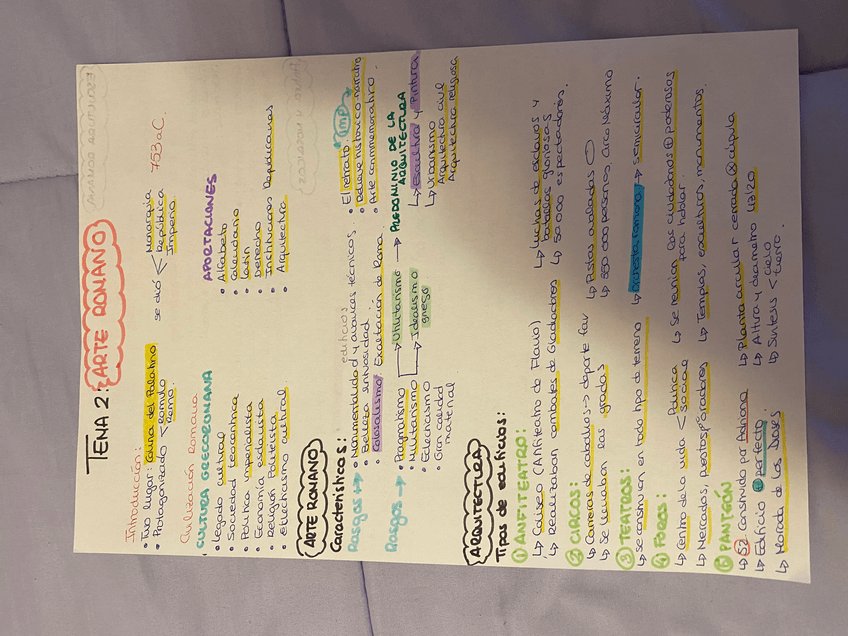 TEMA 2: ARTE ROMANO
Introducción:
• Tuvo lugar: Colina del Palatino se dió < Monarquía República Imperio 753 a.C.
• Protagonizado < Rómulo Remo.
Civilización Romana
• CULTURA GRECORROMANA
• Legado cultural
• Sociedad teocéntrica
• Política imperialista
• Economía esclavista
• Religión Politeísta
• Eclechismo cultural
APORTACIONES
• Alfabeto
• Calendario
• Latín
• Derecho
• Instituciones Republicanas
• Arquitectura
ARTE ROMANO
Características:
Rasgos → • Monumentalidad y avances técnicos edificios
• Belleza sinuosidad
• Colosalismo Exaltación de Roma
• El retrato IMP
• Relieve histórico narrato
• Arte conmemorativo.
Rasgos → • Pragmatismo → Utilitarismo → PREDOMINIO DE LA ARQUITECTURA
• Militarismo ↳ Idealismo griego
• Eclechismo
• Gran calidad material
↳ Escultura y Pintura
↳ Urbanismo
Arquitectura civil
Arquitectura religiosa
ARQUITECTURA
Tipos de edificios:
① ANFITEATRO:
↳ Coliseo (Anfiteatro de Flavio) ↳ Luchas de esclavos y batallas gloriosas
↳ Realizaban combates de Gladiadores ↳ 50 000 espectadores.
② CIRCOS:
↳ Carreras de caballos → deporte fav ↳ Pistas ovaladas
↳ Se llenaban las gradas ↳ 350 000 personas Circo Máximo
③ TEATROS:
↳ se construían en todo tipo de terreno ↳ orchestra romana → semicircular.
④ FOROS:
↳ Centro de la vida < Política social ↳ Se reunían los ciudadanos ⊕ poderosos para hablar.
↳ Mercados, puestos, Gradores ↳ Templos, esculturas, monumentos.
⑤ PANTEÓN
↳ Se construido por Adriano ↳ Planta circular cerrado cúpula
↳ Edificio ⊕ perfecto ↳ Altura y diámetro 43'20
↳ Morada de los Dioses ↳ Síntesis < cielo tierra.